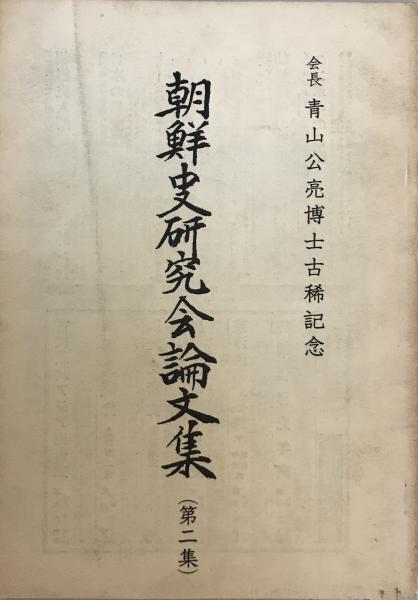 会長 青山公亮博士古稀記念
朝鮮史研究会論文集(第二集)